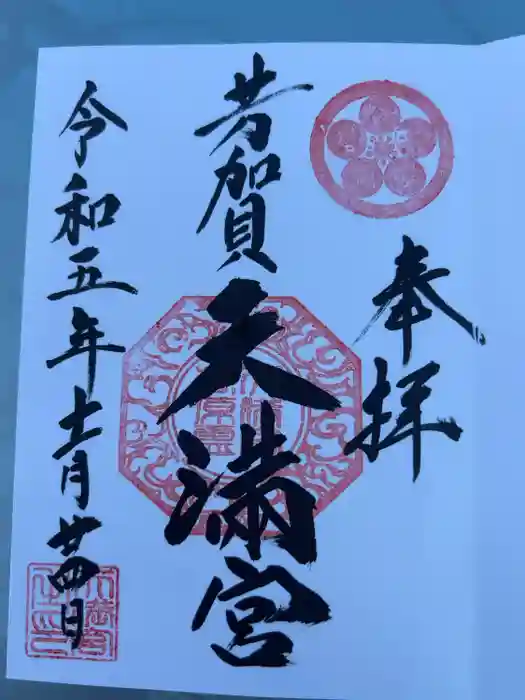 奉拝
芳賀天満宮
令和五年十一月廿四日